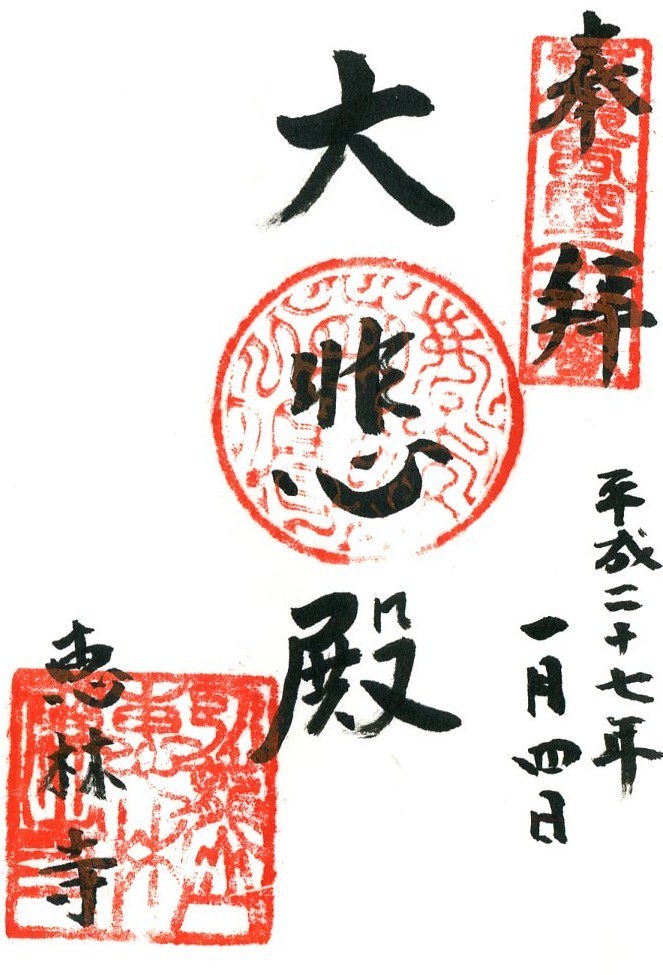 奉拝
平成二十七年
一月四日
大悲殿
恵林寺